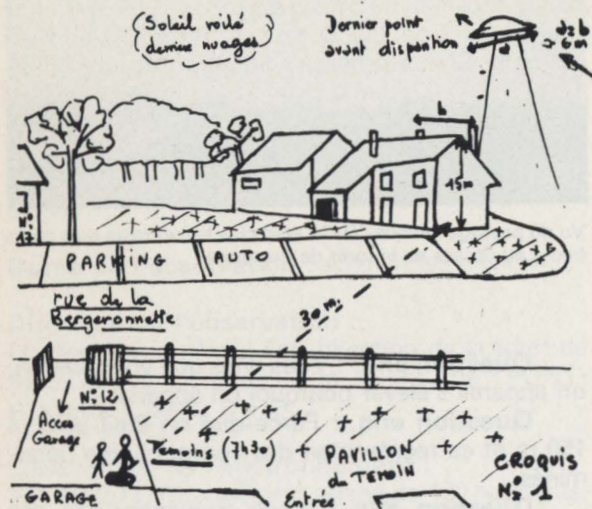 Soleil voilé
derrière nuages
Dernier point
avant disparition
d≥b
> 6m
b
15m
N°
17
PARKING AUTO
rue de la
Bergeronnette
30 m.
N°12
Accès
Garage
Temoins (7h30)
PAVILLON
du TEMOIN
GARAGE
Entrée
CROQUIS
N° 1